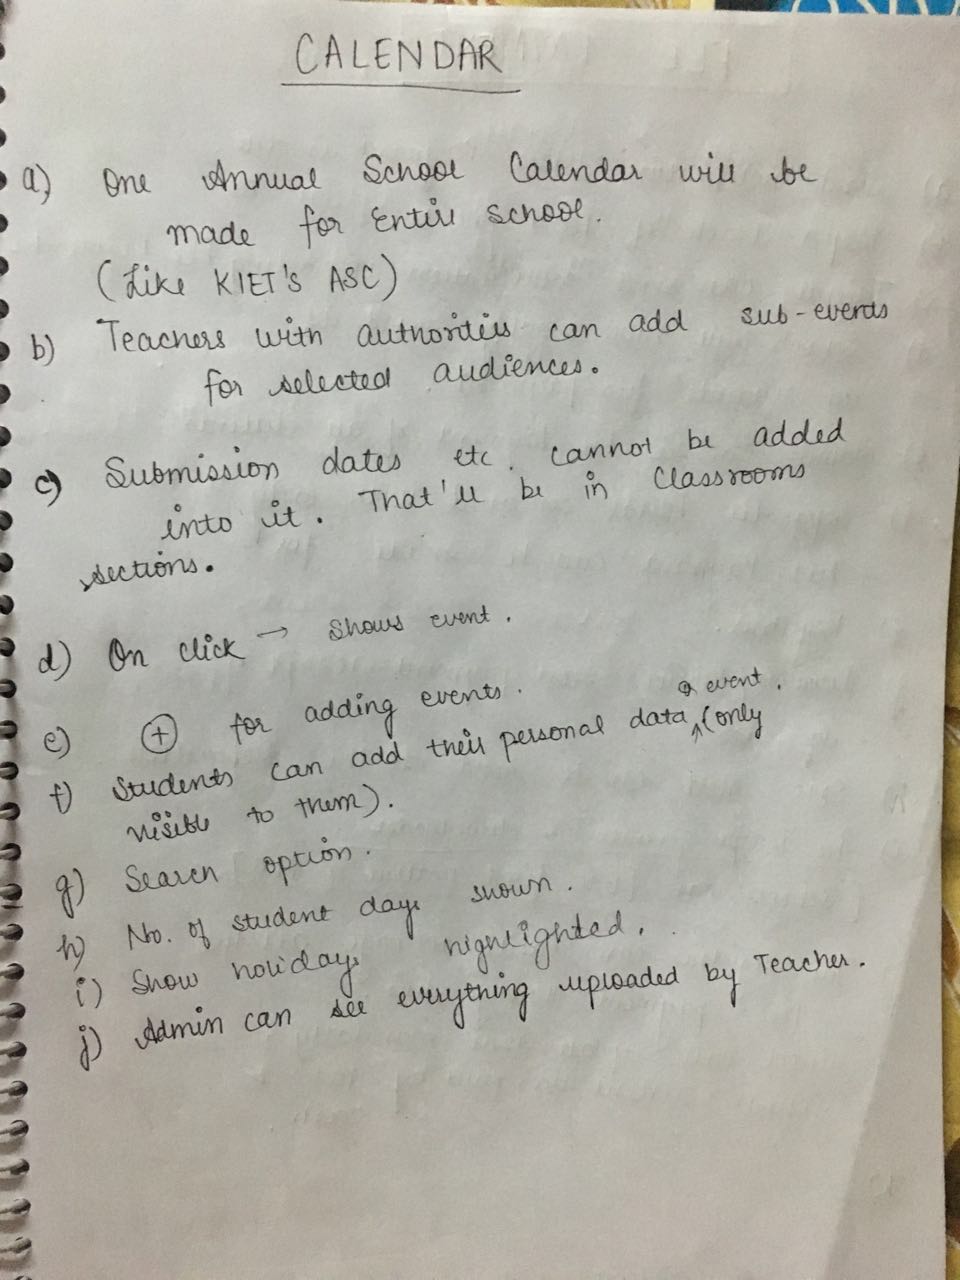 CALENDAR
a) One Annual School Calendar will be
made for Entire school.
(Like KIET'S ASC)
b) Teachers with authorities can add sub-events
for selected audiences.
c) Submission dates etc. cannot be added
into it. That'll be in Classrooms
sections.
d) On click → shows event.
e) ⊕ for adding events.
& event.
f) Students can add their personal data ^ (only
visible to them).
g) Search option.
h) No. of student days shown.
i) Show holidays highlighted.
j) Admin can see everything uploaded by Teacher.